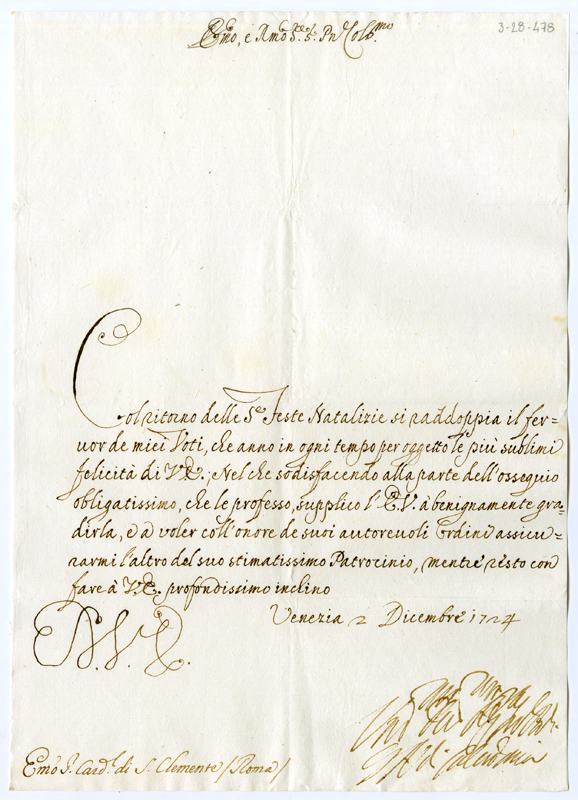 3-28-478
Emo, e Rmo Sre, Sr. Pn Colmo
Col ritorno delle Se Feste Natalizie si raddoppia il fer-
vor de miei Voti, che anno in ogni tempo per oggetto le più sublimi
felicità di V.E.; Nel che sodisfacendo alla parte dell'ossequio
obligatissimo, che le professo, supplico l'E.V. à benignamente gra-
dirla, e à voler coll'onore de suoi autorevoli Ordini assicu-
rarmi l'altro del suo stimatissimo Patrocinio, mentre resto con
fare à V.E. profondissimo inclino
Venezia 2 Dicembre 1724
Emo Sr Cardl di S. Clemente / Roma /